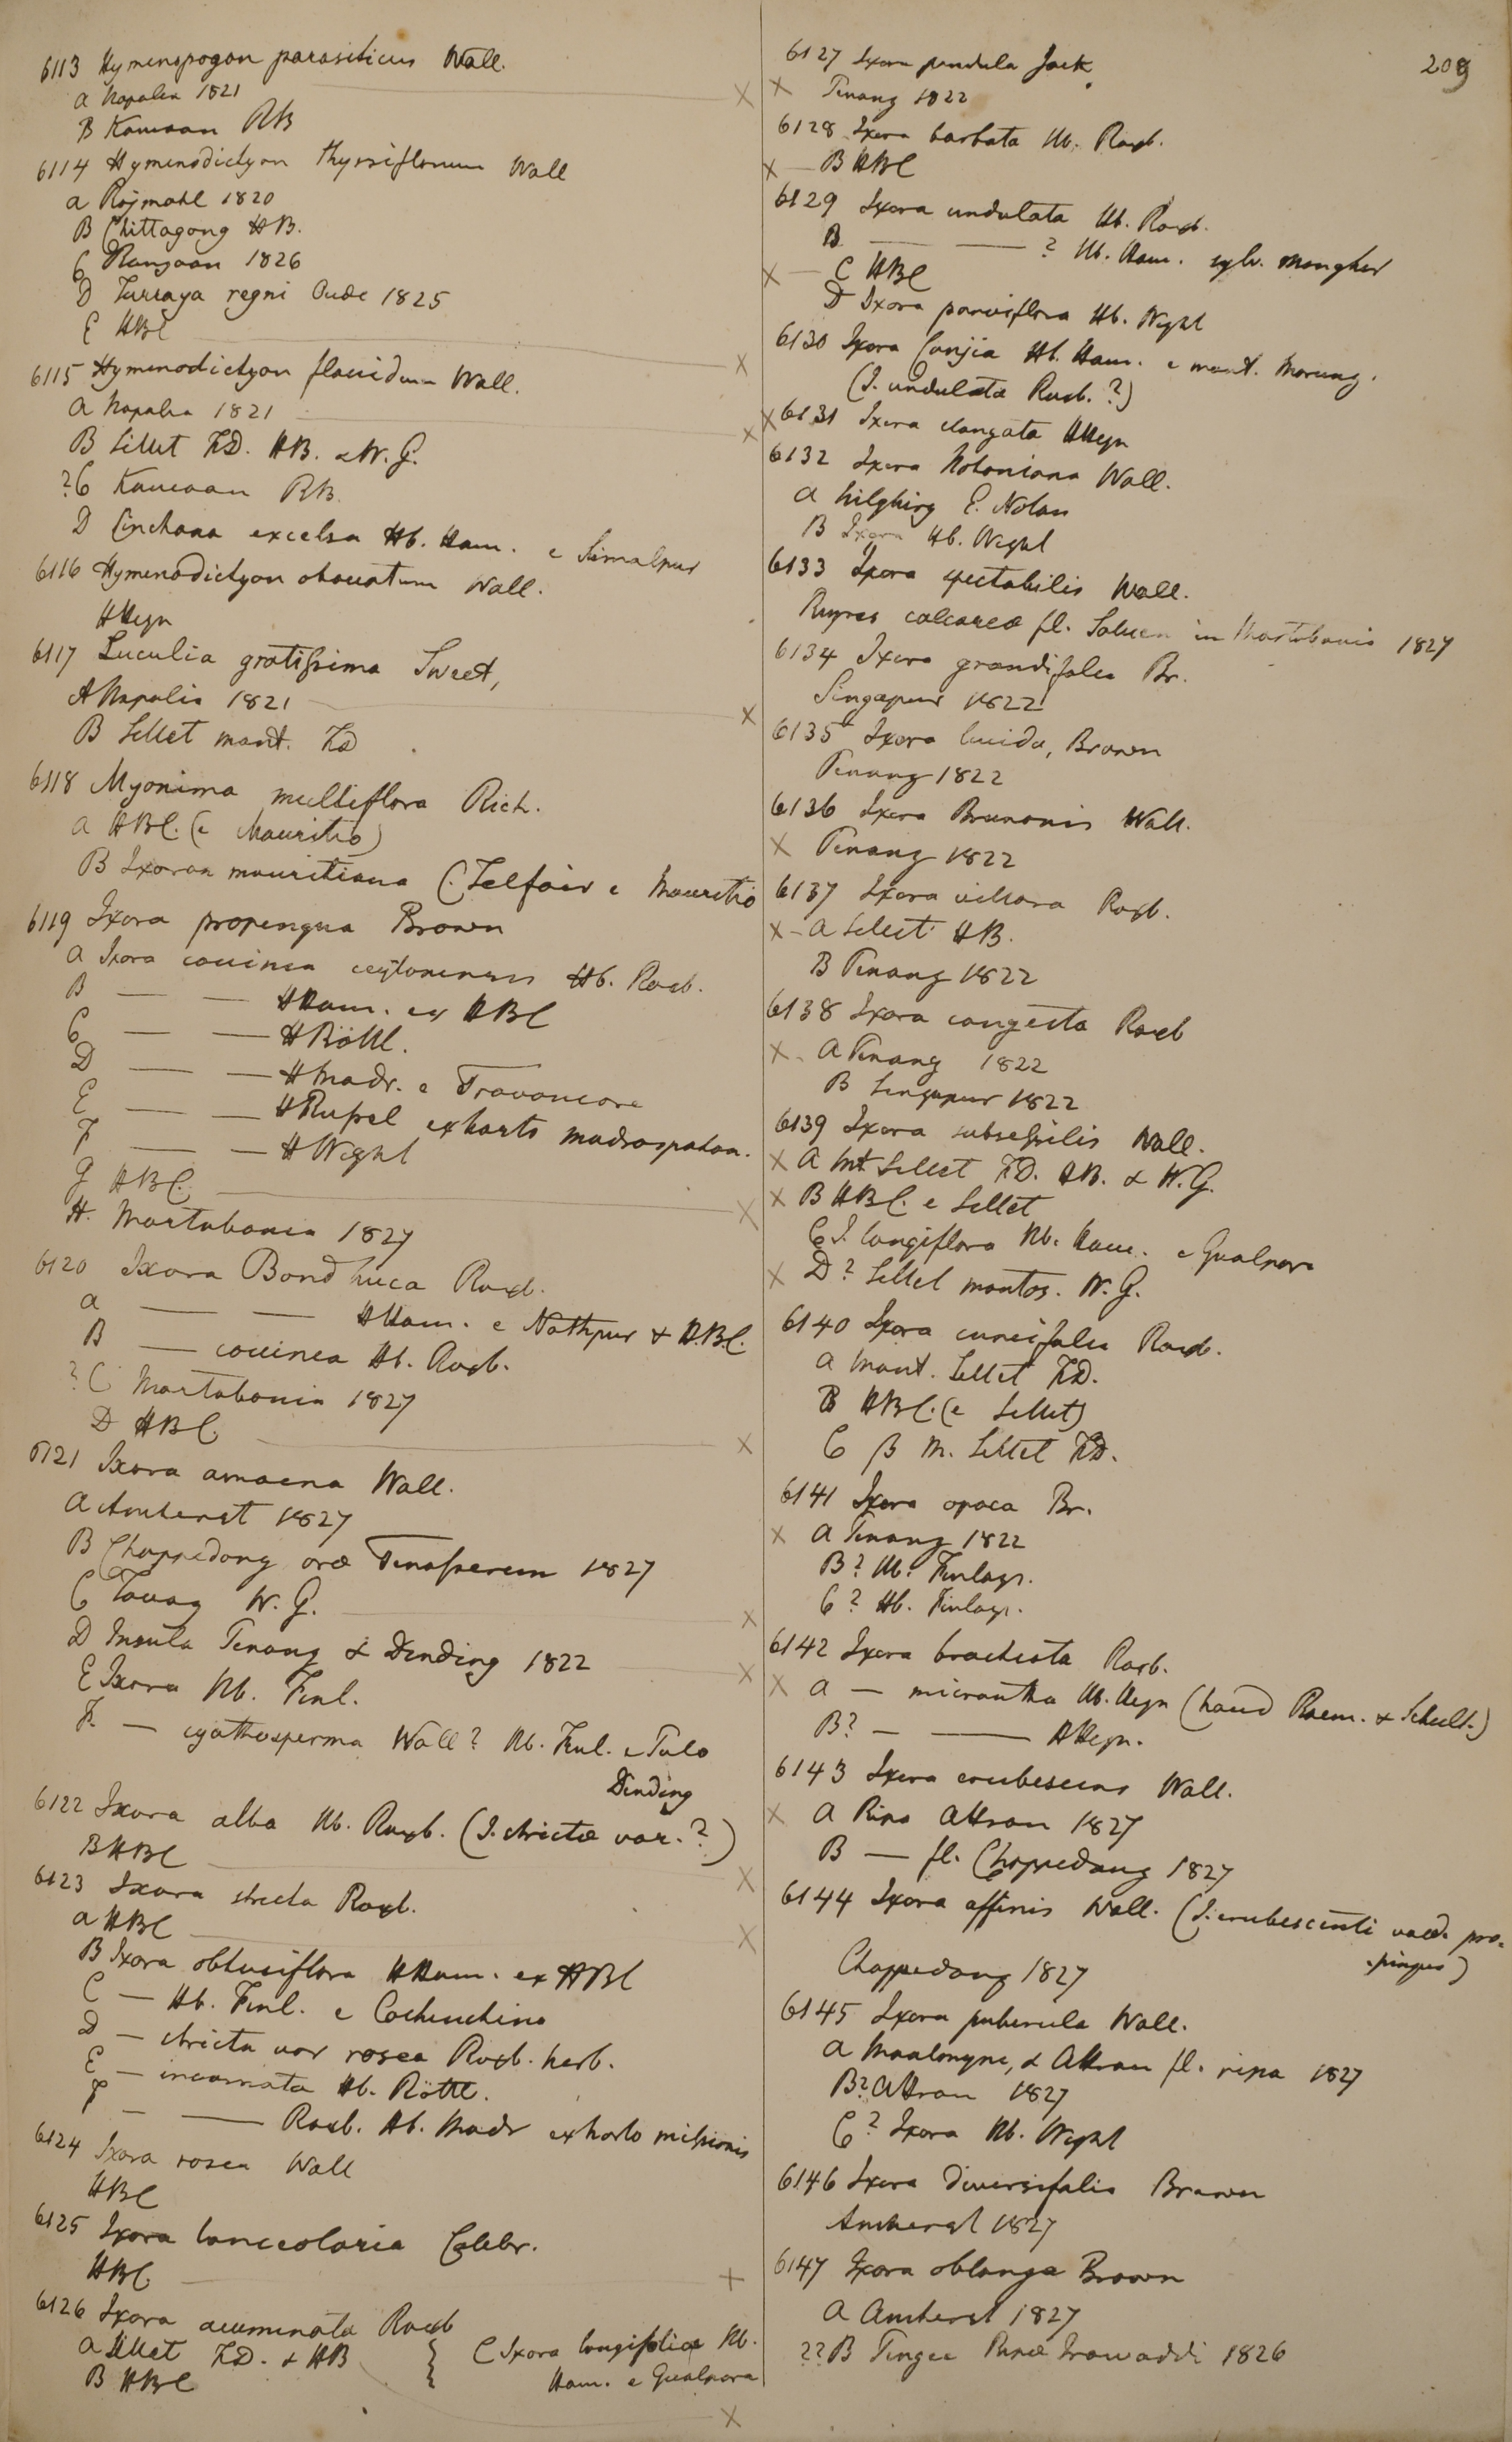 209
6113 Hymenopogon parasiticus Wall.
a Napalia 1821
B Kamaon RB
6114 Hymenodictyon thyrsiflorum Wall
a Rajmahl 1820
B Chittagong HB.
C Rangoon 1826
D Turraya regni Oude 1825
E HBC
6115 Hymenodictyon flaccidum Wall.
a Napalia 1821
B Sillet FD. HB. & W. G.
?C Kamaon RB.
D Cinchona excelsa Hb. Ham. e Simalpur
6116 Hymenodictyon obovatum Wall.
HHeyn
6117 Luculia gratissima Sweet,
A Napalia 1821
B Sillet mont. FD
6118 Myonima multiflora Rich.
a HBC. (e Mauritio)
B Ixorae mauritiana C. Telfair e Mauritio
6119 Ixora propinqua Brown
a Ixora coccinea ceylonensis Hb. Roxb.
B — — HHam. ex HBC
C — — HRöttl.
D — — HMadr. e Travancore
E — — HRussel ex horto madraspatan.
F — — HWight
G HBC.
H. Martabania 1827
6120 Ixora Bandhuca Roxb.
a — — HHam. e Nathpur & H.B.C.
B — coccinea Hb. Roxb.
?C Martabania 1827
D HBC.
6121 Ixora amoena Wall.
a Amherst 1827
B Chappedong orae Tenasserim 1827
C Tavoy W. G.
D Insula Penang & Dinding 1822
E Ixora Hb. Finl.
F. — cyathosperma Wall? Hb. Finl. e Pulo
Dinding
6122 Ixora alba Hb. Roxb. (I. strictae var.?)
B HBC
6123 Ixora stricta Roxb.
a HBC
B Ixora obtusiflora HHam. ex HBC
C — Hb. Finl. e Cochinchina
D — stricta var rosea Roxb. herb.
E — incarnata Hb. Röttl.
F — — Roxb. Hb. Madr ex horto missionis
6124 Ixora rosea Wall
HBC
6125 Ixora lanceolaria Colebr.
HBC.
6126 Ixora acuminata Roxb
a Sillet FD. & HB
B HBC
C Ixora longifoliae Hb.
Ham. e Gualpara
6127 Ixora pendula Jack
x Penang 1822
6128 Ixora barbata Hb. Roxb.
x — B HBC
6129 Ixora undulata Hb. Roxb.
B — — ? Hb. Ham. sylv. Mongher
x — C HBC
D Ixora parviflora Hb. Wight
6130 Ixora Conjia Hb. Ham. e mont. Morung.
(I. undulata Roxb.?)
x 6131 Ixora elongata HHeyn
6132 Ixora Notoniana Wall.
a Nilghiry E. Noton
B Ixora Hb. Wight
6133 Ixora spectabilis Wall.
Rupes calcarea fl. Saluen in Martabania 1827
6134 Ixora grandifolia Br.
Singapur 1822
6135 Ixora lucida, Brown
Penang 1822
6136 Ixora Brunonis Wall.
x Penang 1822
6137 Ixora villosa Roxb.
x - a Sillet HB.
B Penang 1822
6138 Ixora congesta Roxb
x. a Penang 1822
B Singapur 1822
6139 Ixora subsessilis Wall.
x a Mt Sillet FD. HB. & W. G.
x B HBC. e Sillet
C I. longiflora Hb. Ham. e Gualpara
x D? Sillet montos. W. G.
6140 Ixora cuneifolia Roxb.
a Mont. Sillet FD.
B HBC. (e Sillet)
C β M. Sillet FD.
6141 Ixora opaca Br.
x a Penang 1822
B? Hb. Finlays.
C? Hb. Finlays.
6142 Ixora brachiata Roxb.
x a — micrantha Hb. Heyn (haud Roem. & Schult.)
B? — — HHeyn.
6143 Ixora erubescens Wall.
x a Ripa Attran 1827
B — fl. Chappedong 1827
6144 Ixora affinis Wall. (I. erubescenti valde pro-
pinqua)
Chappedong 1827
6145 Ixora puberula Wall.
a Moalmyne, & Attran fl. ripa 1827
B? Attran 1827
C? Ixora Hb. Wight
6146 Ixora diversifolia Brown
Amherst 1827
6147 Ixora oblonga Brown
a Amherst 1827
??B Ripae Irawaddi 1826